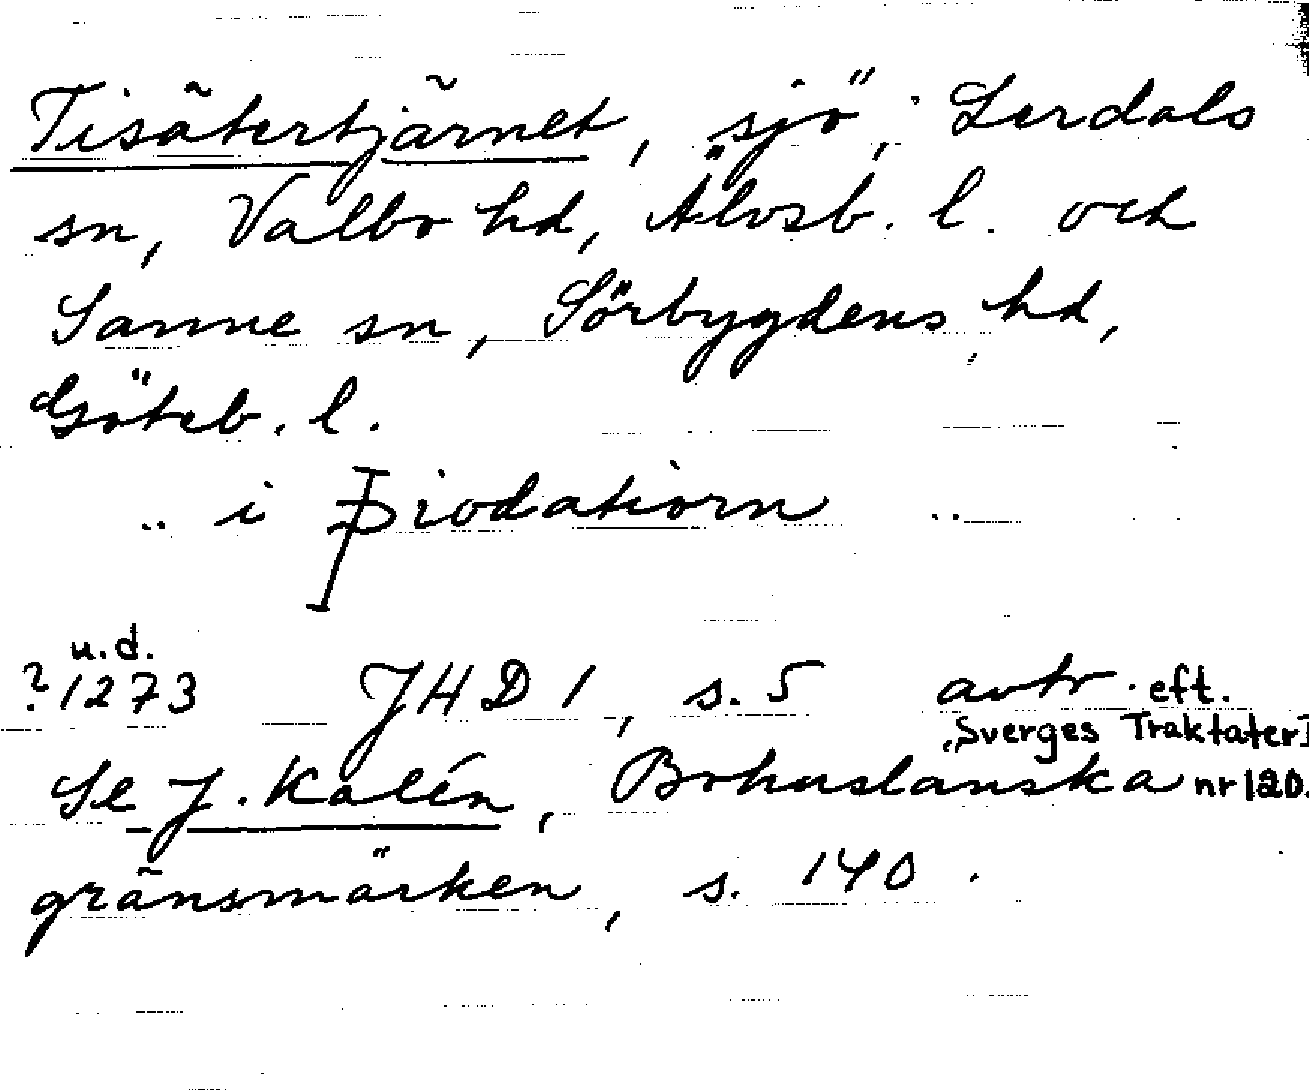 Tisätertjärnet, sjö, Lerdals
sn, Valbo hd, Älvsb. l. och
Sanne sn, Sörbygdens hd,
Göteb. l.
.. i Þiodatiorn ..
u.d.
?1273 JHD 1, s. 5 avtr. eft.
"Sverges Traktater I
Se J. Kalén, Bohuslänska nr 120.
gränsmärken, s. 140.